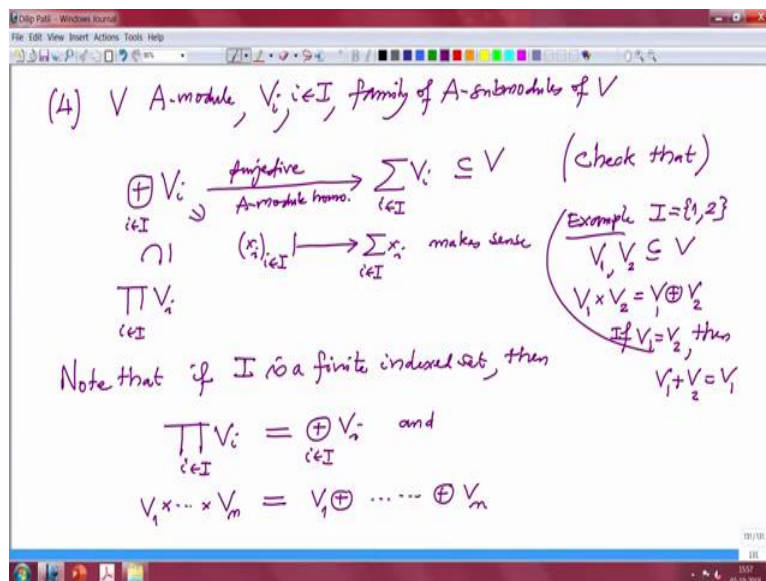 Dilip Patil - Windows Journal
File Edit View Insert Actions Tools Help
(4) V A-module, V_i, i∈I, family of A-submodules of V
⊕_{i∈I} V_i surjective A-module homo. → ∑_{i∈I} V_i ⊆ V (Check that)
∩| (x_i)_{i∈I} ↦ ∑_{i∈I} x_i makes sense
∏_{i∈I} V_i
Example I={1,2}
V_1, V_2 ⊆ V
V_1 × V_2 = V_1 ⊕ V_2
If V_1 = V_2, then
V_1 + V_2 = V_1
Note that if I is a finite indexed set, then
∏_{i∈I} V_i = ⊕_{i∈I} V_i and
V_1 × ⋯ × V_n = V_1 ⊕ ⋯⋯ ⊕ V_n
131/131
131
1557